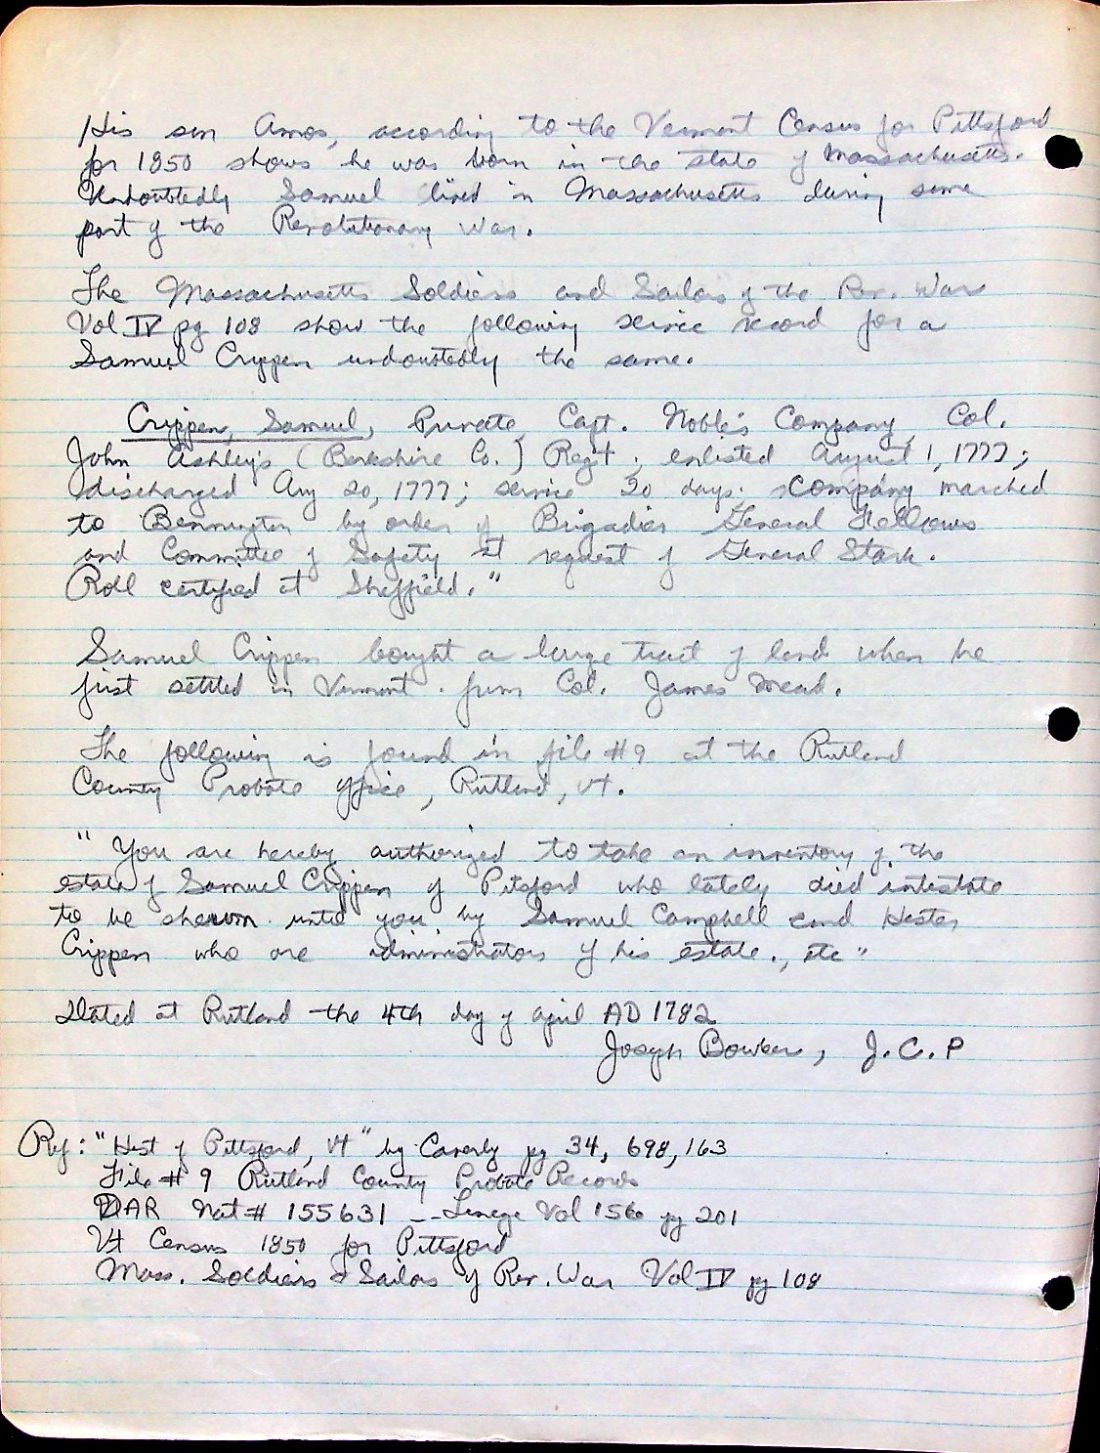 His son Amos, according to the Vermont Census for Pittsford
for 1850 shows he was born in the state of Massachusetts.
Undoubtedly Samuel lived in Massachusetts during some
part of the Revolutionary War.
The Massachusetts Soldiers and Sailors of the Rev. War
Vol IV pg 108 show the following service record for a
Samuel Crippen undoubtedly the same.
Crippen, Samuel, Private, Capt. Noble's Company, Col.
John Ashley's (Berkshire Co.) Reg't; enlisted August 1, 1777;
discharged Aug 20, 1777; service 20 days; company marched
to Bennington by order of Brigadier General Fellows
and Committee of Safety at request of General Stark.
Roll certified at Sheffield."
Samuel Crippen bought a large tract of land when he
first settled in Vermont. from Col. James Mead.
The following is found in file #9 at the Rutland
County Probate office, Rutland, Vt.
"You are hereby authorized to take an inventory of the
estate of Samuel Crippen of Pitsford who lately died intestate
to be shewn unto you by Samuel Campbell and Hester
Crippen who are administrators of his estate., etc"
Dated at Rutland the 4th day of April AD 1782
Joseph Bowker, J.C.P
Ref: "Hist of Pittsford, Vt" by Caverly pg 34, 698, 163
File # 9 Rutland County Probate Records
DAR Nat # 155631 -- Linege Vol 156 pg 201
Vt Census 1850 for Pittsford
Mass. Soldiers & Sailors of Rev. War Vol IV pg 108